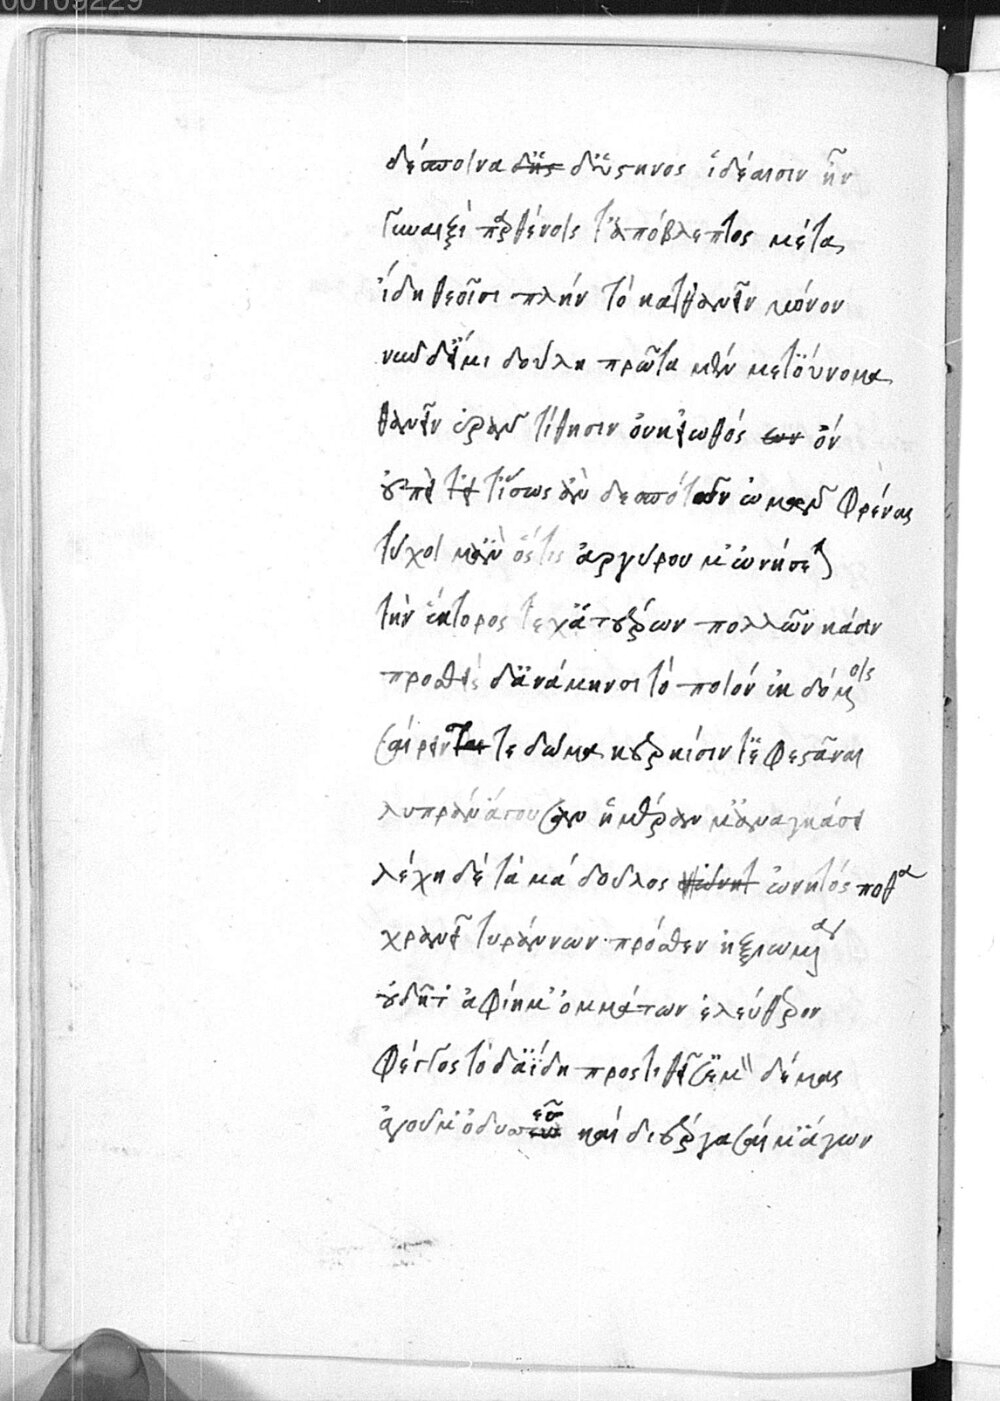 δέσποινα δἡ δύστηνος ἰδέαισιν ἦν
γυναιξὶ παρθένοις τ' ἀπόβλεπτος μέτα
ἴδη θεοῖσι πλήν τὸ κατθανεῖν μόνον
νῦν δ' εἰμι δούλη πρῶτα μέν με τοὔνομα
θανεῖν ἐρᾶν τίθησιν οὐκ εἰωθός ὄν
ἔπειτ' ἴσως ἂν δεσπότων ὠμῶν φρένας
τύχοιμ' ἂν ὅστις ἀργύρου μ' ὠνήσεται
τὴν ἕκτορος τε χἀτέρων πολλῶν κάσιν
προσθεὶς δ' ἀνάγκην σιτοποιόν ἐν δόμοις
σαίρειν τε δῶμα κερκίσιν τ' ἐφεστᾶναι
λυπρὰν ἄγουσαν ἡμέραν μ' ἀναγκάσει
λέχη δέ τἀμά δοῦλος ὠνητός ποθεν
χρανεῖ τυράννων πρόσθεν ἠξιωμένα
οὐ δῆτ' ἀφίημ' ὀμμάτων ἐλεύθερον
φέγγος τόδ' ἀΐδη προστιθεῖσ' ἐμὸν δέμας
ἄγου μ' ὀδυσσεῦ καί διέργασαί μ' ἄγων